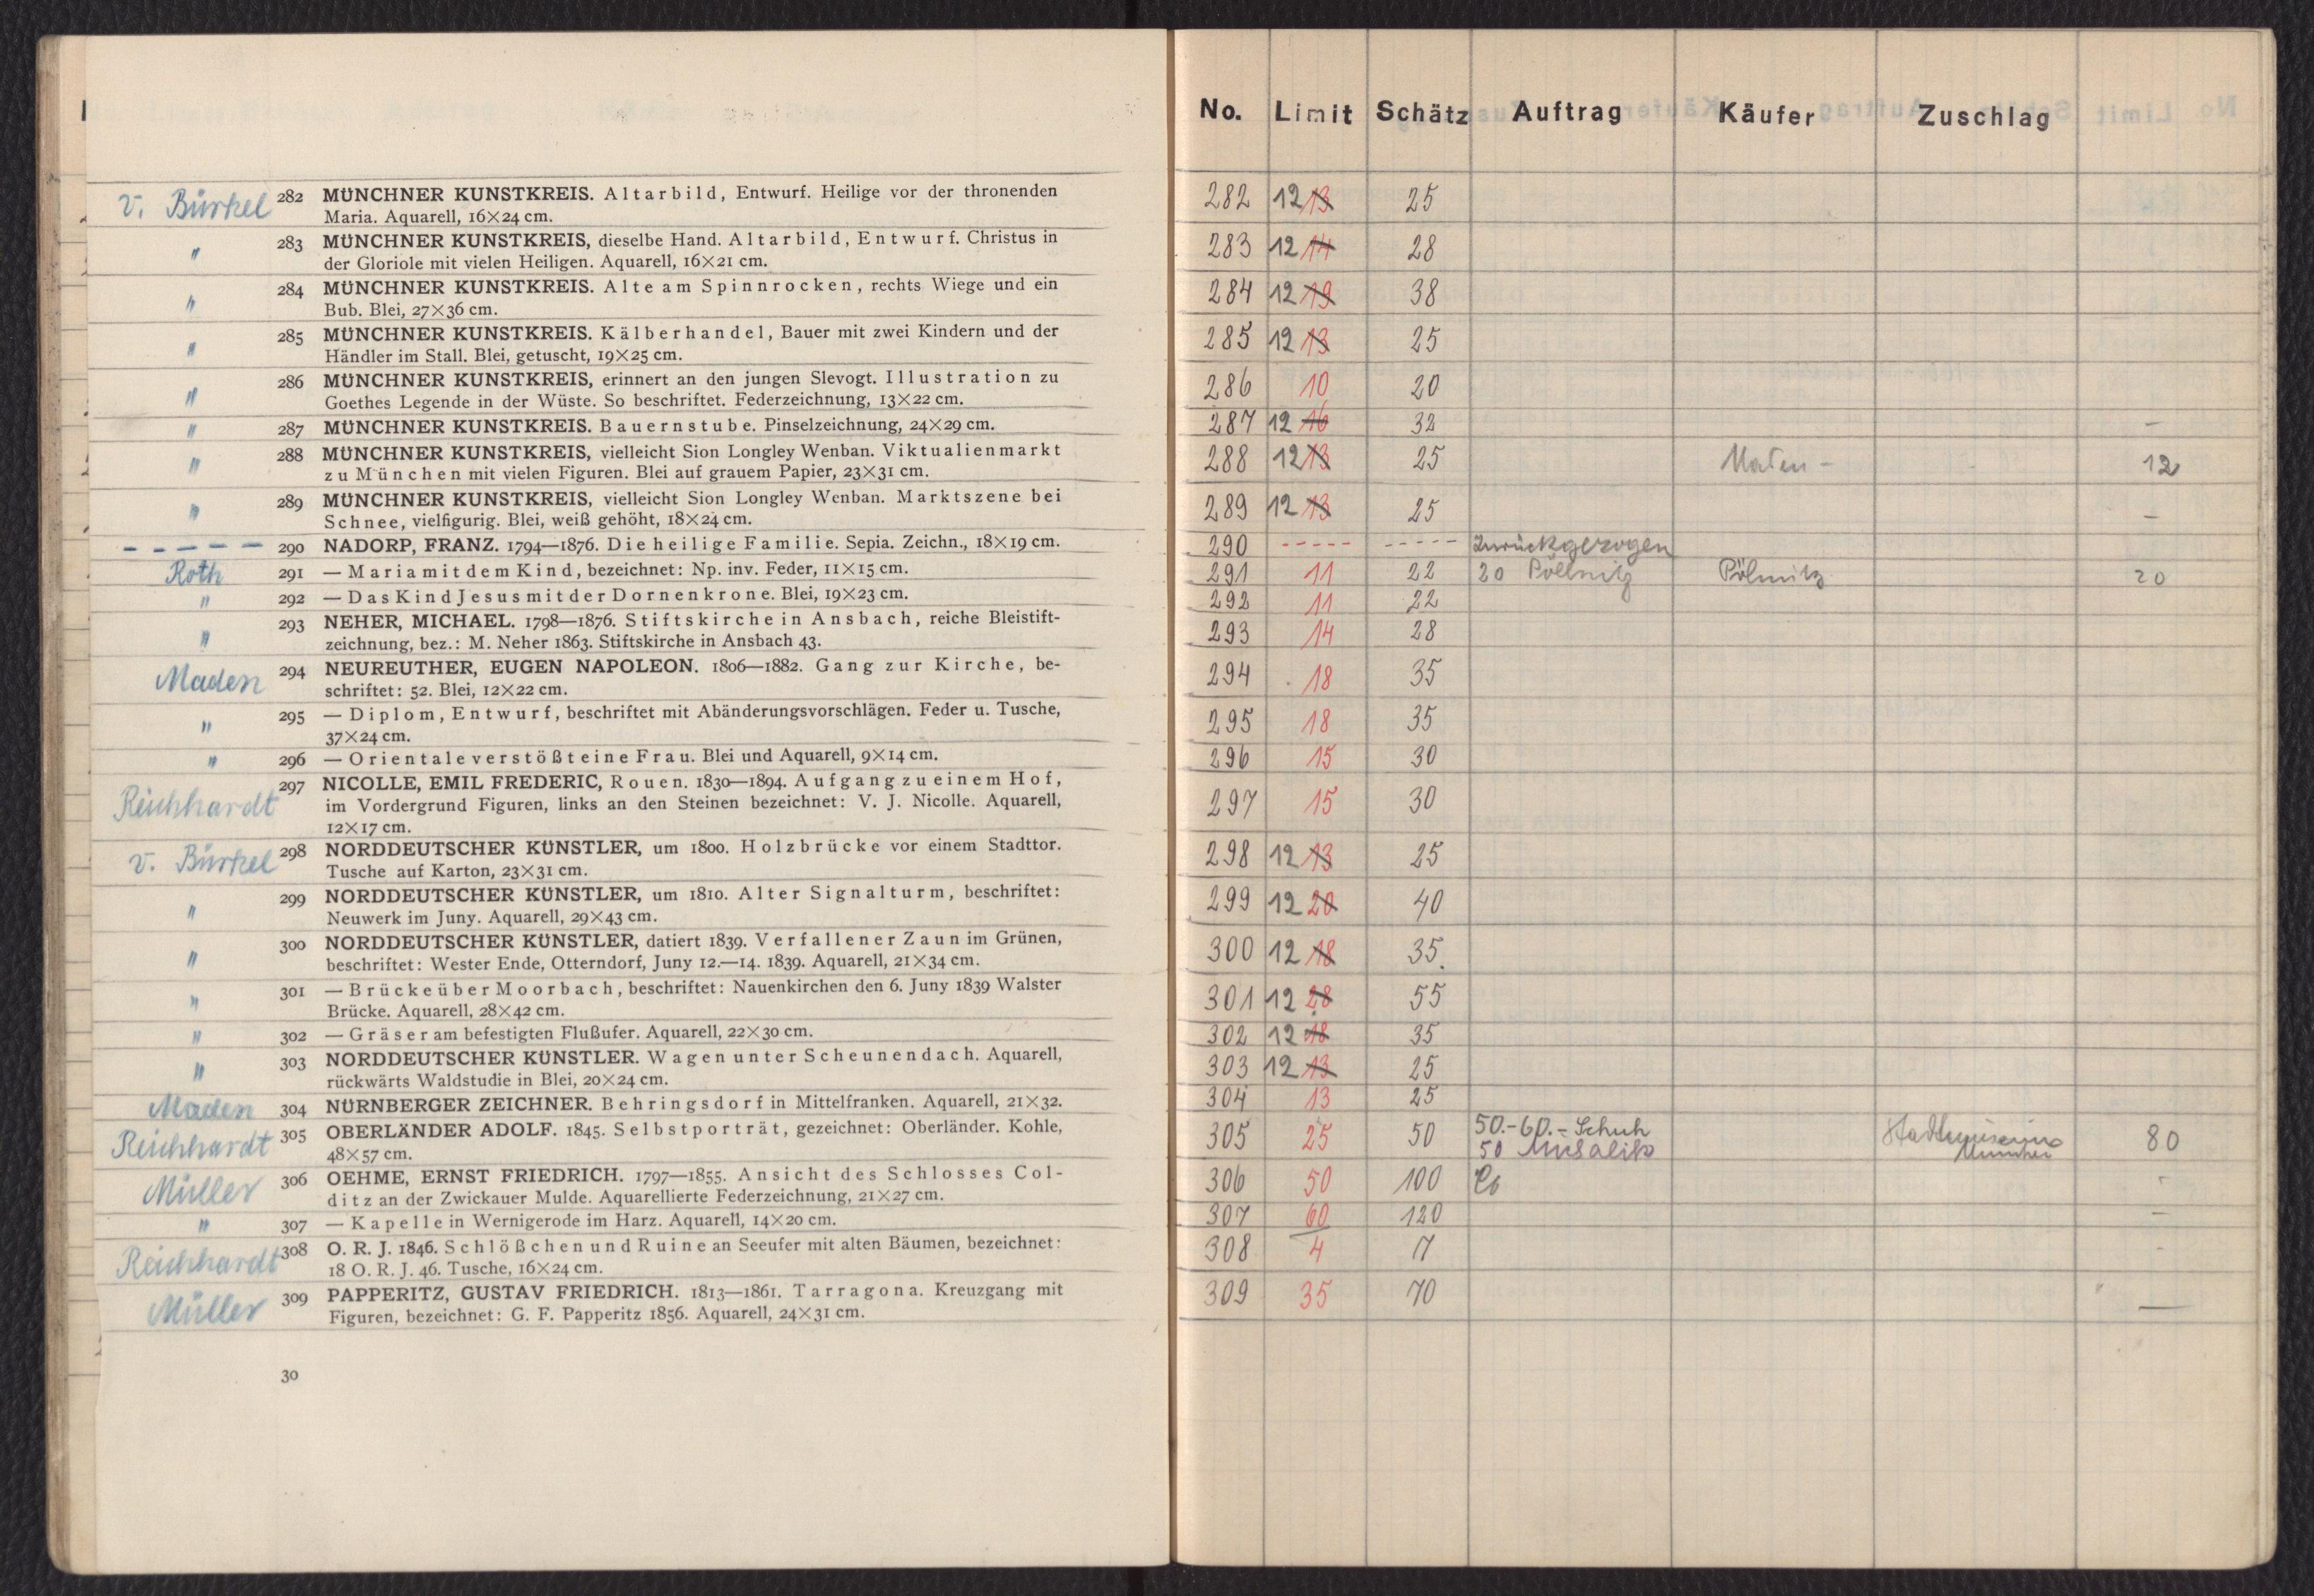 v. Bürkel 282 MÜNCHNER KUNSTKREIS. Altarbild, Entwurf. Heilige vor der thronenden
Maria. Aquarell, 16×24 cm.
" 283 MÜNCHNER KUNSTKREIS, dieselbe Hand. Altarbild, Entwurf. Christus in
der Gloriole mit vielen Heiligen. Aquarell, 16×21 cm.
" 284 MÜNCHNER KUNSTKREIS. Alte am Spinnrocken, rechts Wiege und ein
Bub. Blei, 27×36 cm.
" 285 MÜNCHNER KUNSTKREIS. Kälberhandel, Bauer mit zwei Kindern und der
Händler im Stall. Blei, getuscht, 19×25 cm.
" 286 MÜNCHNER KUNSTKREIS, erinnert an den jungen Slevogt. Illustration zu
Goethes Legende in der Wüste. So beschriftet. Federzeichnung, 13×22 cm.
" 287 MÜNCHNER KUNSTKREIS. Bauernstube. Pinselzeichnung, 24×29 cm.
" 288 MÜNCHNER KUNSTKREIS, vielleicht Sion Longley Wenban. Viktualienmarkt
zu München mit vielen Figuren. Blei auf grauem Papier, 23×31 cm.
" 289 MÜNCHNER KUNSTKREIS, vielleicht Sion Longley Wenban. Marktszene bei
Schnee, vielfigurig. Blei, weiß gehöht, 18×24 cm.
- - - - - 290 NADORP, FRANZ. 1794—1876. Die heilige Familie. Sepia. Zeichn., 18×19 cm.
Roth 291 — Maria mit dem Kind, bezeichnet: Np. inv. Feder, 11×15 cm.
" 292 — Das Kind Jesus mit der Dornenkrone. Blei, 19×23 cm.
" 293 NEHER, MICHAEL. 1798—1876. Stiftskirche in Ansbach, reiche Bleistift-
zeichnung, bez.: M. Neher 1863. Stiftskirche in Ansbach 43.
Maden 294 NEUREUTHER, EUGEN NAPOLEON. 1806—1882. Gang zur Kirche, be-
schriftet: 52. Blei, 12×22 cm.
" 295 — Diplom, Entwurf, beschriftet mit Abänderungsvorschlägen. Feder u. Tusche,
37×24 cm.
" 296 — Orientale verstößt eine Frau. Blei und Aquarell, 9×14 cm.
Reichhardt 297 NICOLLE, EMIL FREDERIC, Rouen. 1830—1894. Aufgang zu einem Hof,
im Vordergrund Figuren, links an den Steinen bezeichnet: V. J. Nicolle. Aquarell,
12×17 cm.
v. Bürkel 298 NORDDEUTSCHER KÜNSTLER, um 1800. Holzbrücke vor einem Stadttor.
Tusche auf Karton, 23×31 cm.
" 299 NORDDEUTSCHER KÜNSTLER, um 1810. Alter Signalturm, beschriftet:
Neuwerk im Juny. Aquarell, 29×43 cm.
" 300 NORDDEUTSCHER KÜNSTLER, datiert 1839. Verfallener Zaun im Grünen,
beschriftet: Wester Ende, Otterndorf, Juny 12.—14. 1839. Aquarell, 21×34 cm.
" 301 — Brücke über Moorbach, beschriftet: Nauenkirchen den 6. Juny 1839 Walster
Brücke. Aquarell, 28×42 cm.
" 302 — Gräser am befestigten Flußufer. Aquarell, 22×30 cm.
" 303 NORDDEUTSCHER KÜNSTLER. Wagen unter Scheunendach. Aquarell,
rückwärts Waldstudie in Blei, 20×24 cm.
Maden 304 NÜRNBERGER ZEICHNER. Behringsdorf in Mittelfranken. Aquarell, 21×32.
Reichhardt 305 OBERLÄNDER ADOLF. 1845. Selbstporträt, gezeichnet: Oberländer. Kohle,
48×57 cm.
Müller 306 OEHME, ERNST FRIEDRICH. 1797—1855. Ansicht des Schlosses Col-
ditz an der Zwickauer Mulde. Aquarellierte Federzeichnung, 21×27 cm.
" 307 — Kapelle in Wernigerode im Harz. Aquarell, 14×20 cm.
Reichhardt 308 O. R. J. 1846. Schlößchen und Ruine an Seeufer mit alten Bäumen, bezeichnet:
18 O. R. J. 46. Tusche, 16×24 cm.
Müller 309 PAPPERITZ, GUSTAV FRIEDRICH. 1813—1861. Tarragona. Kreuzgang mit
Figuren, bezeichnet: G. F. Papperitz 1856. Aquarell, 24×31 cm.
30
No. Limit Schätz Auftrag Käufer Zuschlag
282 12 13 25
283 12 14 28
284 12 19 38
285 12 13 25
286 10 20
287 12 16 32 —
288 12 13 25 Maden - 12
289 12 13 25 —
290 ----- ----- Zurückgezogen
291 11 22 20 Pöllnitz Pölnitz 20
292 11 22
293 14 28
294 18 35
295 18 35
296 15 30
297 15 30
298 12 13 25
299 12 20 40
300 12 18 35
301 12 28 55
302 12 18 35
303 12 13 25
304 13 25
305 25 50 50.-60.- Schuh Stadtmuseum 80
50 München
306 50 100 -
307 60 120 —
308 4 7 -
309 35 70 —